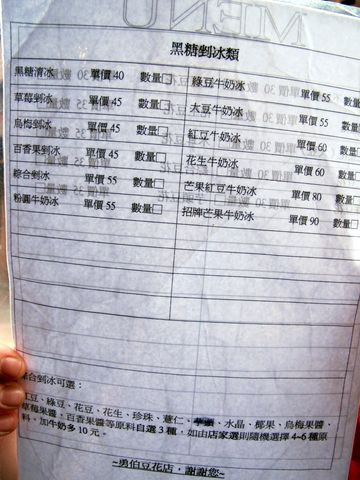 MENU
黑糖剉冰類
黑糖清冰 單價 40 數量□ 綠豆牛奶冰 單價 55 數量□
草莓剉冰 單價 45 數量□ 大豆牛奶冰 單價 55 數量□
烏梅剉冰 單價 45 數量□ 紅豆牛奶冰 單價 60 數量□
百香果剉冰 單價 45 數量□ 花生牛奶冰 單價 60 數量□
綜合剉冰 單價 55 數量□ 芒果紅豆牛奶冰 單價 80 數量□
粉圓牛奶冰 單價 55 數量□ 招牌芒果牛奶冰 單價 90 數量□
綜合剉冰可選：
紅豆、綠豆、花豆、花生、珍珠、薏仁、芋頭、水晶、椰果、烏梅果醬、
草莓果醬、百香果醬等原料自選 3 種，如由店家選則隨機選擇 4~6 種原
料。加牛奶多 10 元。
~勇伯豆花店，謝謝您~